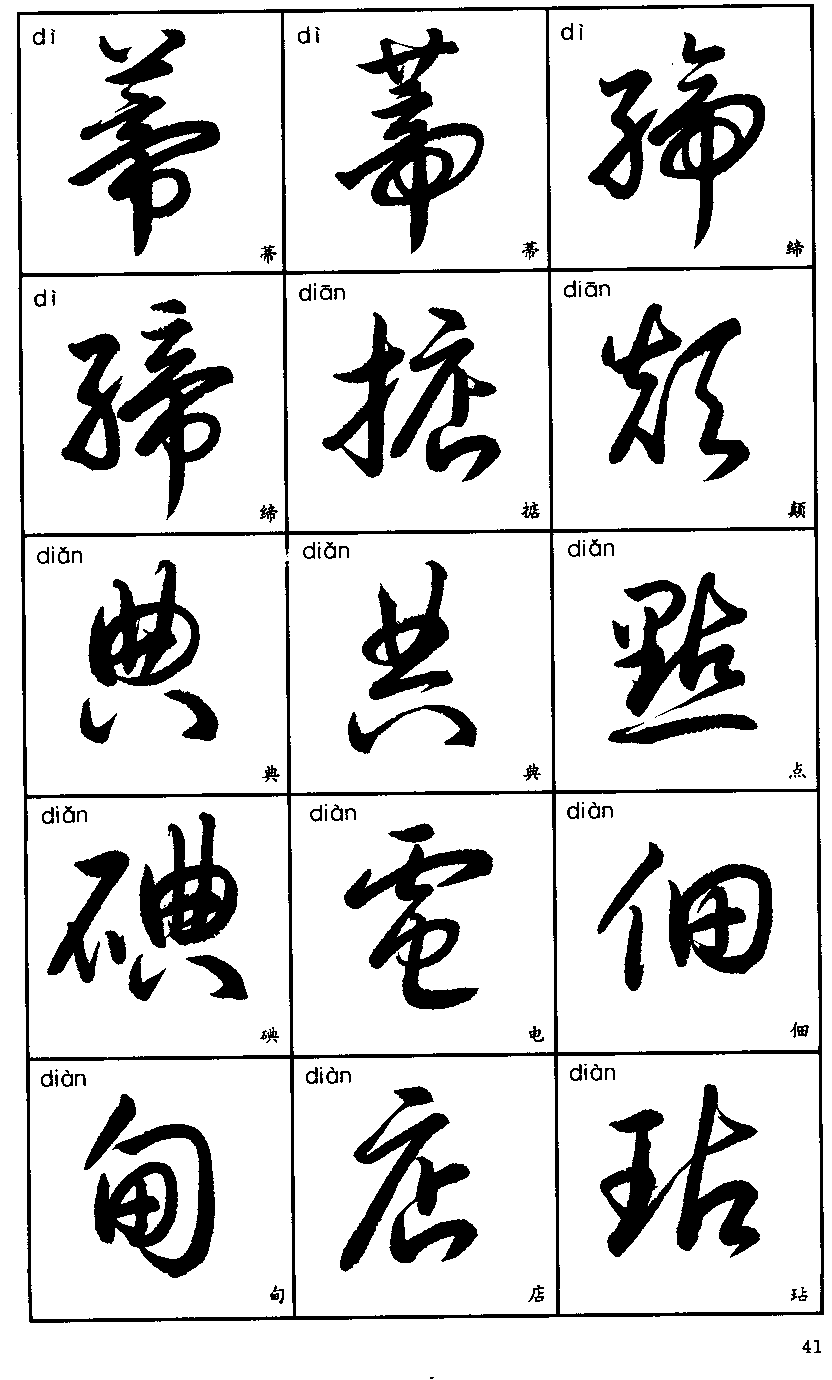 dì dì dì
蒂 蒂 締
蒂 蒂 缔
dì diān diān
締 掂 颠
缔 掂 颠
diǎn diǎn diǎn
典 典 點
典 典 点
diǎn diàn diàn
碘 電 佃
碘 电 佃
diàn diàn diàn
甸 店 玷
甸 店 玷
41